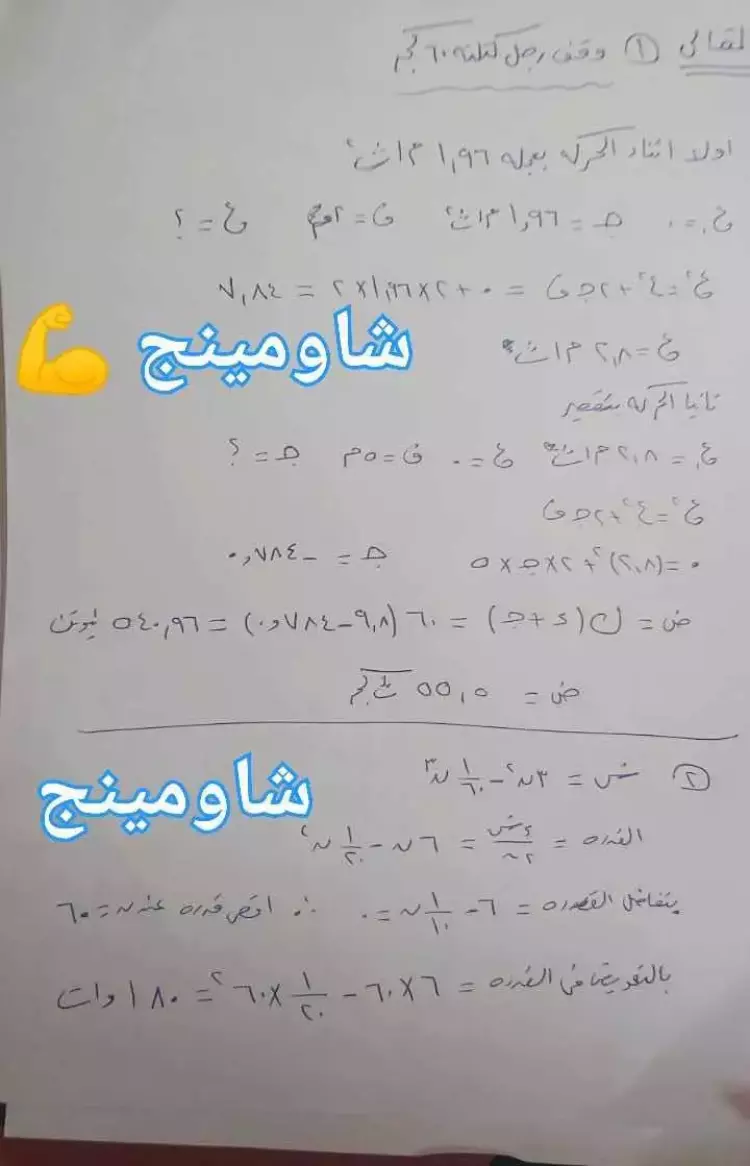 المقالى ① وقف رجل كتلته ٦٠ كجم
اولا اثناء الحركه بعجله ١,٩٦ م/ث٢
ع. = ٠ جـ = ١,٩٦ م/ث٢ ف = ٢م ع = ؟
ع٢ = ع.٢ + ٢ جـ ف = ٠ + ٢×١,٩٦×٢ = ٧,٨٤
شاومينج 💪
ع = ٢,٨ م/ث
ثانيا الحركه بتقصير
ع. = ٢,٨ م/ث ع = ٠ ف = ٥م جـ = ؟
ع٢ = ع.٢ + ٢ جـ ف
٠ = (٢,٨)٢ + ٢×جـ×٥ جـ = -٠,٧٨٤
ض = ك(ء + جـ) = ٦٠ (٩,٨ - ٠,٧٨٤) = ٥٤٠,٩٦ نيوتن
ض = ٥٥,٢ ث كجم
شاومينج
② ش = ٣ن٢ - ١/٦٠ ن٣
القدره = ءش/ءن = ٦ن - ١/٢٠ ن٢
بتفاضل القدره = ٦ - ١/١٠ ن = ٠ ∴ اقصى قدره عند ن = ٦٠
بالتعويض فى القدره = ٦×٦٠ - ١/٢٠ × ٦٠٢ = ١٨٠ وات